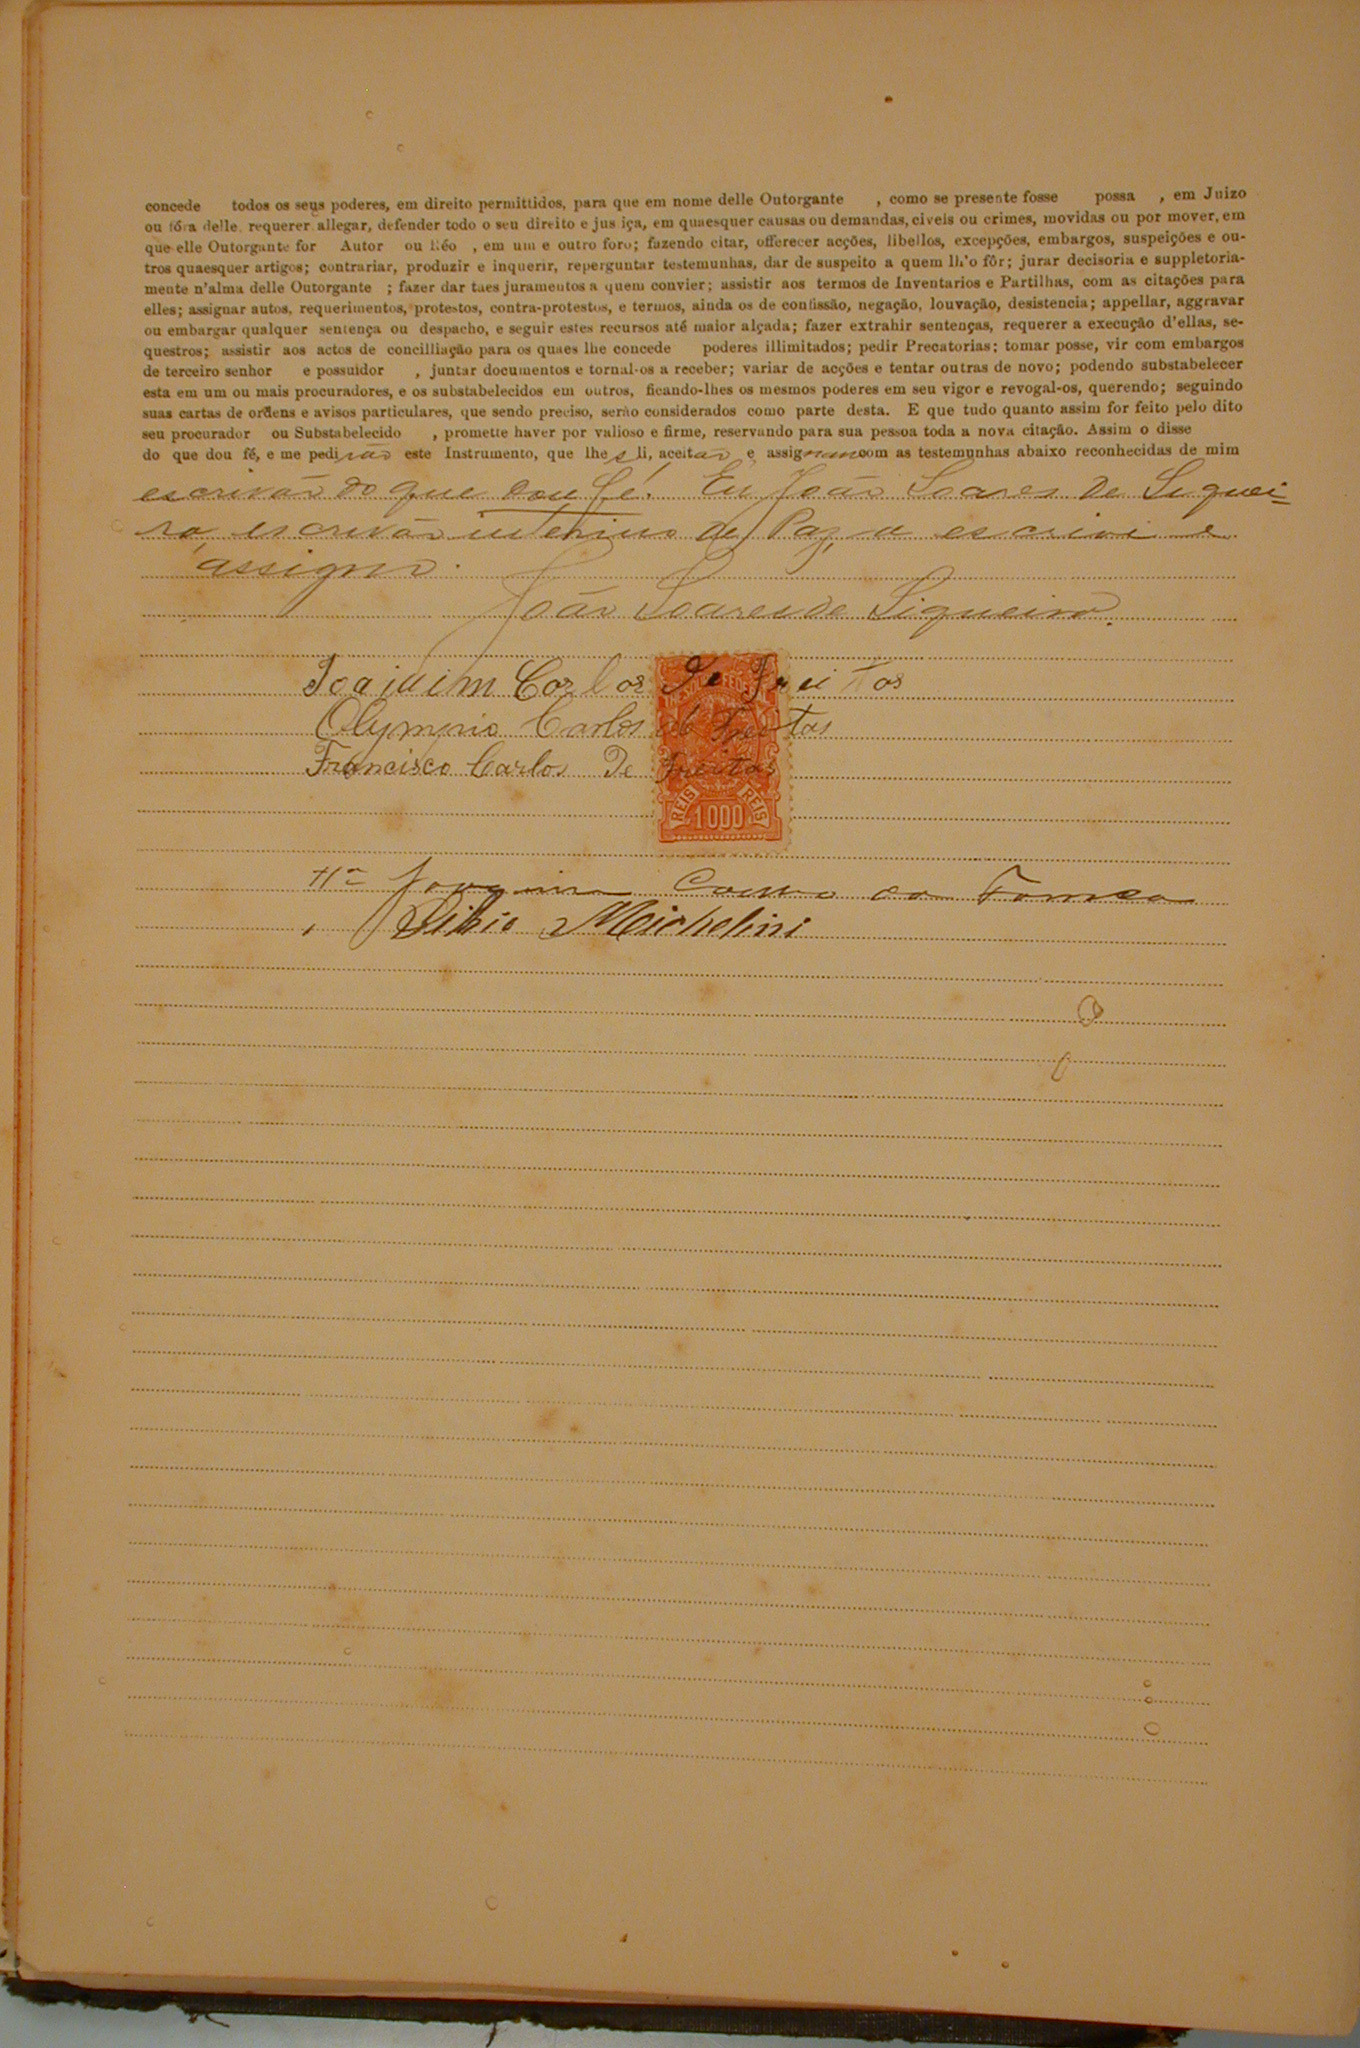 concede todos os seus poderes, em direito permittidos, para que em nome delle Outorgante , como se presente fosse possa , em Juizo
ou fóra delle requerer allegar, defender todo o seu direito e jus iça, em quaesquer causas ou demandas, civeis ou crimes, movidas ou por mover, em
que elle Outorgante for Autor ou Réo , em um e outro foro; fazendo citar, offerecer acções, libellos, excepções, embargos, suspeições e ou-
tros quaesquer artigos; contrariar, produzir e inquerir, reperguntar testemunhas, dar de suspeito a quem lh'o fôr; jurar decisoria e suppletoria-
mente n'alma delle Outorgante ; fazer dar taes juramentos a quem convier; assistir aos termos de Inventarios e Partilhas, com as citações para
elles; assignar autos, requerimentos, protestos, contra-protestos, e termos, ainda os de confissão, negação, louvação, desistencia; appellar, aggravar
ou embargar qualquer sentença ou despacho, e seguir estes recursos até maior alçada; fazer extrahir sentenças, requerer a execução d'ellas, se-
questros; assistir aos actos de concilliação para os quaes lhe concede poderes illimitados; pedir Precatorias; tomar posse, vir com embargos
de terceiro senhor e possuidor , juntar documentos e tornal-os a receber; variar de acções e tentar outras de novo; podendo substabelecer
esta em um ou mais procuradores, e os substabelecidos em outros, ficando-lhes os mesmos poderes em seu vigor e revogal-os, querendo; seguindo
suas cartas de ordens e avisos particulares, que sendo preciso, serão considerados como parte desta. E que tudo quanto assim for feito pelo dito
seu procurador ou Substabelecido , promette haver por valioso e firme, reservando para sua pessoa toda a nova citação. Assim o disse
do que dou fé, e me pedirão este Instrumento, que lhes li, aceitão e assignam com as testemunhas abaixo reconhecidas de mim
escrivão do que dou fé. Eu João Soares de Siquei-
ra, escrivão interino de Paz, o escrivi e
assigno.
João Soares de Siqueira.
Joaquim Carlos de Freitas
Olympio Carlos de Freitas
Francisco Carlos de Freitas
REIS 1000 REIS
Joaquim
Michelini